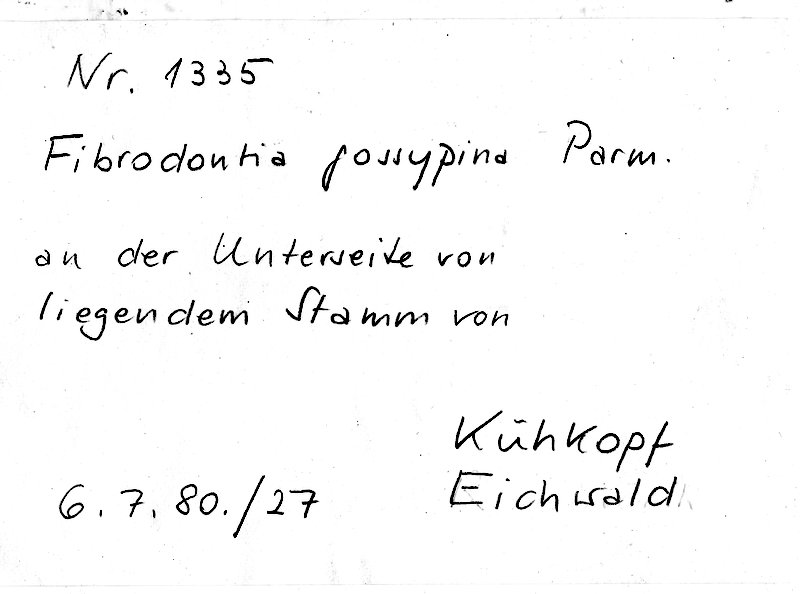 Nr. 1335
Fibrodontia gossypina Parm.
an der Unterseite von
liegendem Stamm von
Kühkopf
Eichwald
6.7.80./27